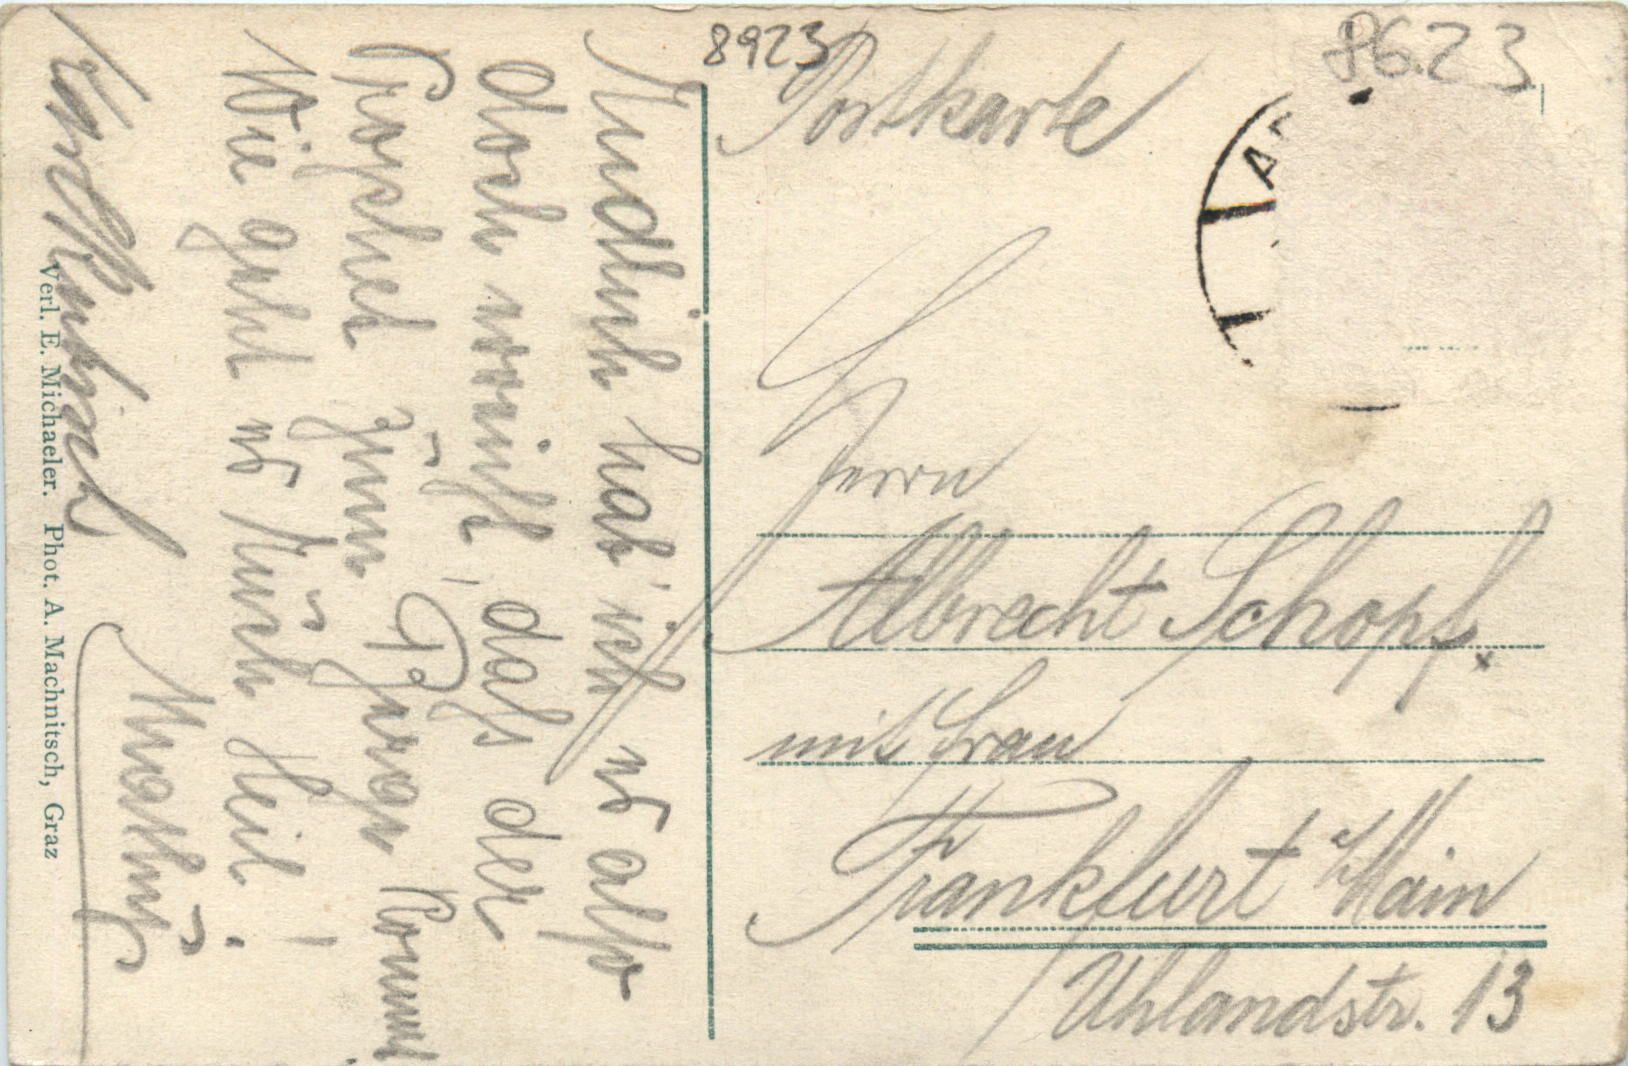 8923
8623
Postkarte
Herrn
Albrecht Schopf
mit Frau
Frankfurt a/Main
Uhlandstr. 13
Endlich hab' ich es also
doch erreicht, dass der
zum Berge kommt
Wie geht es Euch Heil!
Verl. E. Michaeler. Phot. A. Machnitsch, Graz